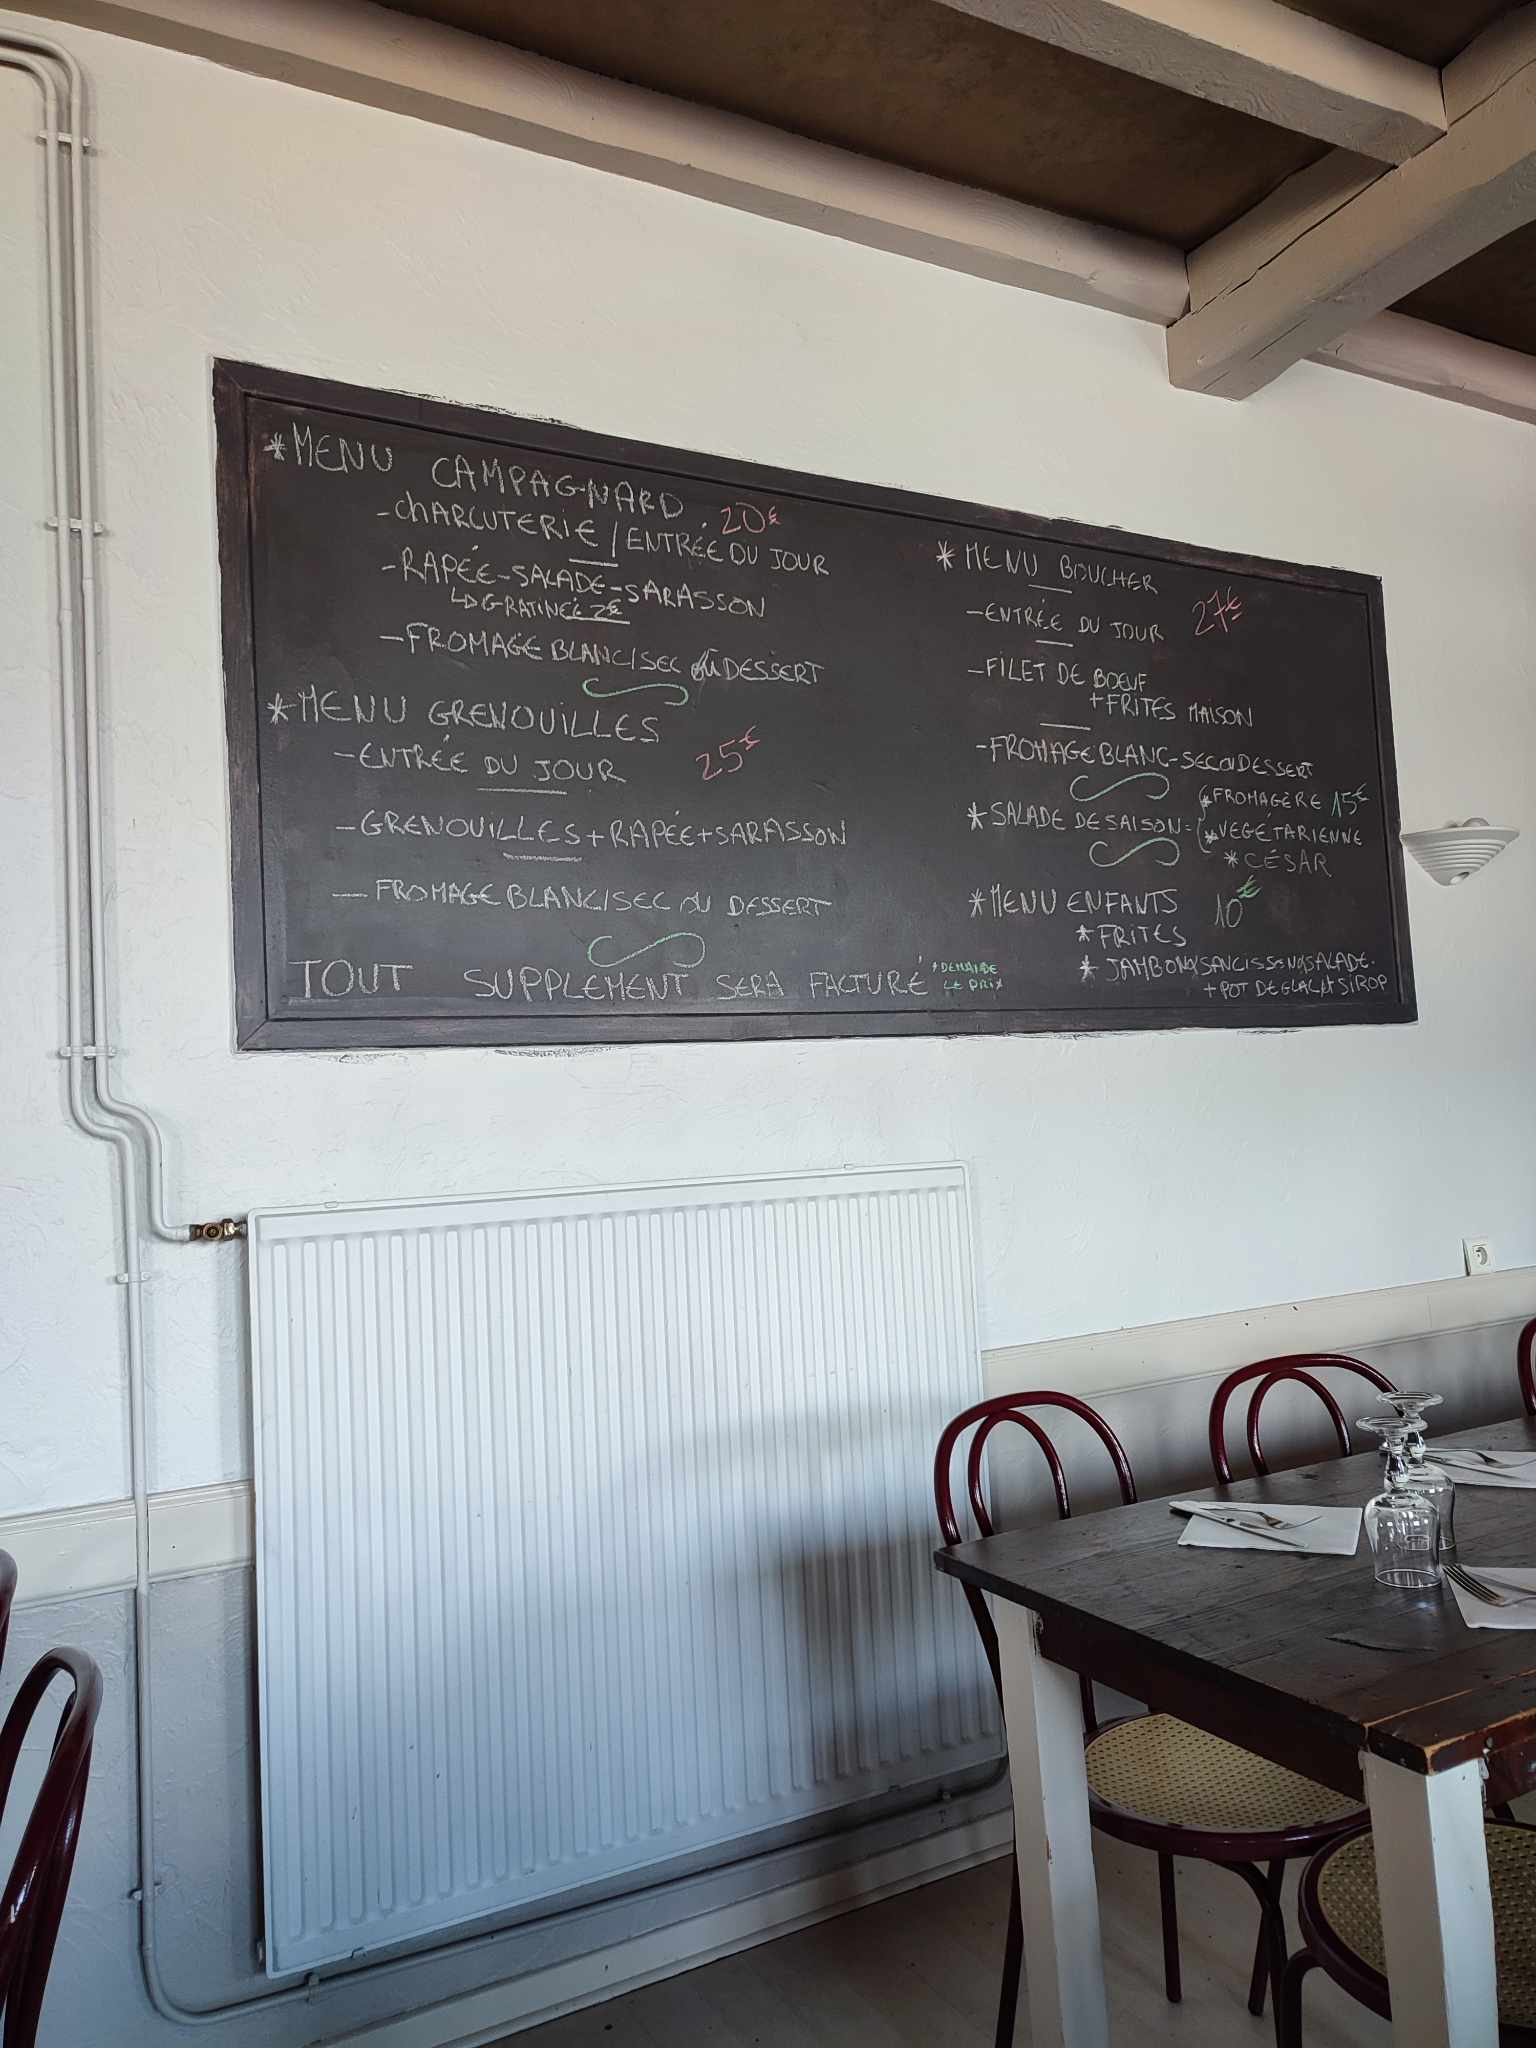 *MENU CAMPAGNARD 20€
-CHARCUTERIE/ENTRÉE DU JOUR
-RAPÉE-SALADE-SARASSON
GRATINÉE 2€
-FROMAGE BLANC/SEC OU DESSERT
*MENU GRENOUILLES
25€
-ENTRÉE DU JOUR
-GRENOUILLES+RAPÉE+SARASSON
- FROMAGE BLANC/SEC OU DESSERT
TOUT SUPPLEMENT SERA FACTURÉ *DEMANDE
LE PRIX
*MENU BOUCHER
27€
-ENTRÉE DU JOUR
-FILET DE BOEUF
+FRITES MAISON
-FROMAGE BLANC-SEC OU DESSERT
*SALADE DE SAISON= *FROMAGÈRE 15€
*VEGÉTARIENNE
*CÉSAR
*MENU ENFANTS 10€
*FRITES
* JAMBON SAUCISSON SALADE.
+POT DE GLACE SIROP